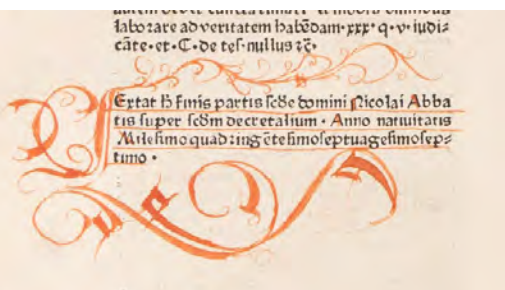 laborare ad veritatem habēdam·xxx·q·v·iudi⸗
cāte·et·C·de tes·nullus ⁊c̄·
Extat h̄ finis partis scd̄e domini Nicolai Abba
tis super scd̄m decretalium · Anno natiuitatis
Milesimo quadringētesimoseptuagesimosep⸗
timo ·